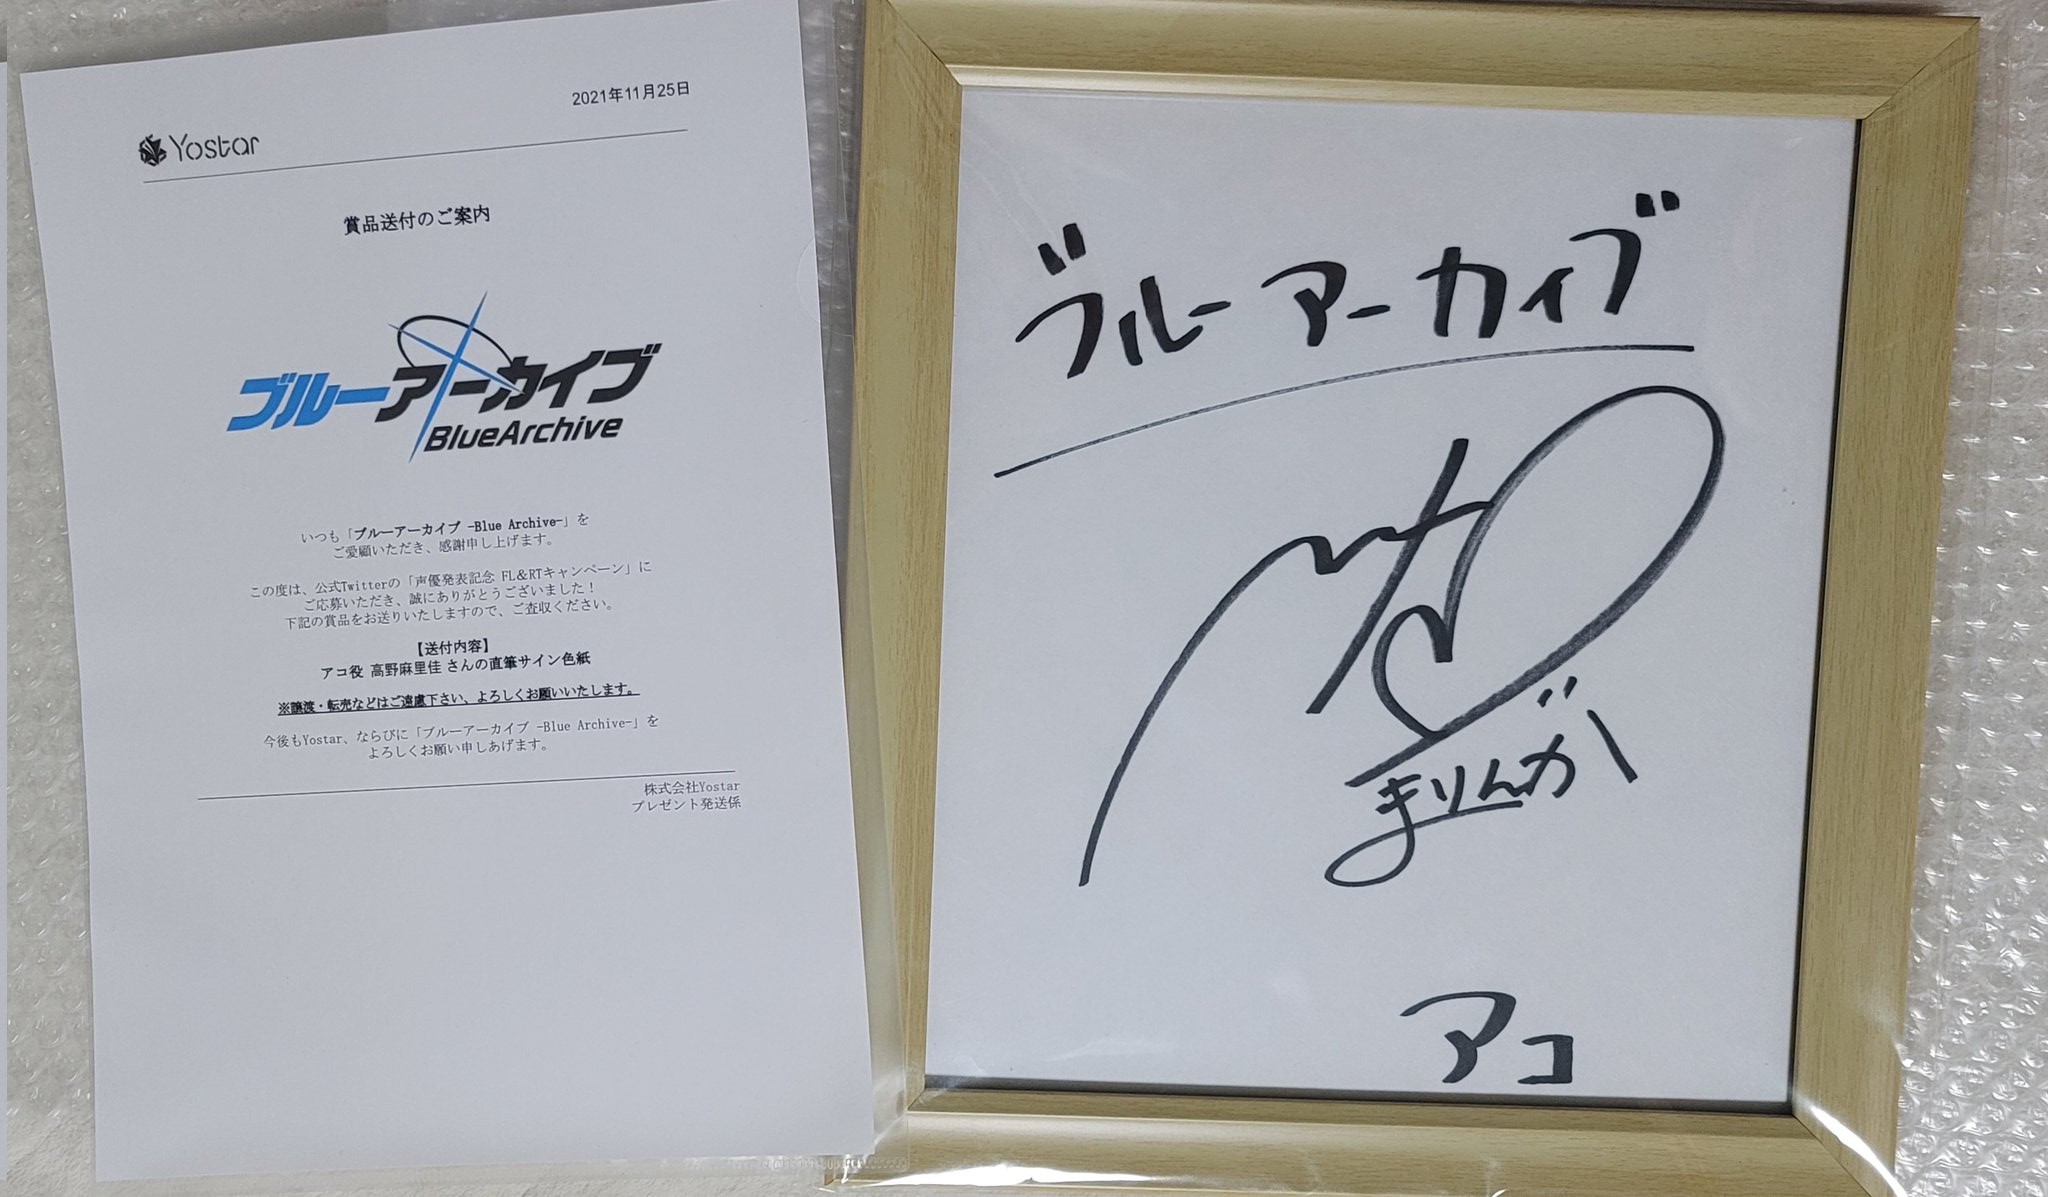 2021年11月25日
Yostar
賞品送付のご案内
ブルーアーカイブ
BlueArchive
いつも「ブルーアーカイブ -Blue Archive-」を
ご愛顧いただき、感謝申し上げます。
この度は、公式Twitterの「声優発表記念 FL&RTキャンペーン」に
ご応募いただき、誠にありがとうございました！
下記の賞品をお送りいたしますので、ご査収ください。
【送付内容】
アコ役 高野麻里佳 さんの直筆サイン色紙
※譲渡・転売などはご遠慮下さい、よろしくお願いいたします。
今後もYostar、ならびに「ブルーアーカイブ -Blue Archive-」を
よろしくお願い申しあげます。
株式会社Yostar
プレゼント発送係
ブルーアーカイブ
まりんか
アコ